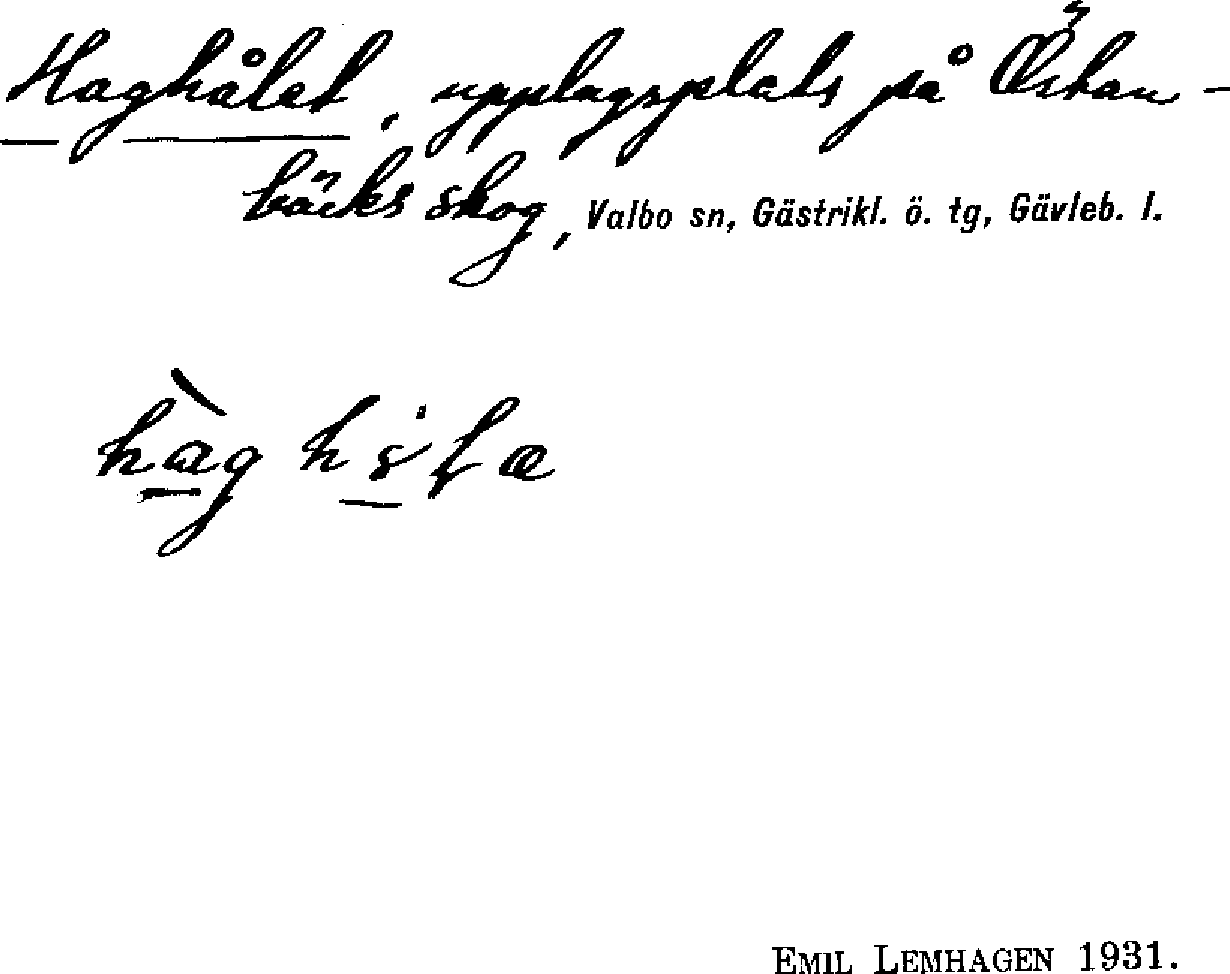 Haghålet, upplagsplats på Östan-
bäcks skog, Valbo sn, Gästrikl. ö. tg, Gävleb. l.
EMIL LEMHAGEN 1931.